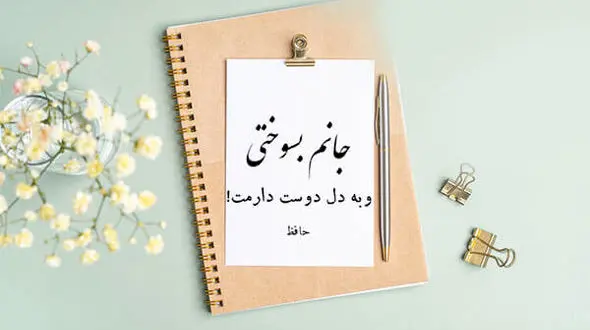 جانم بسوختی
وبه دل دوست دارمت!
حافظ